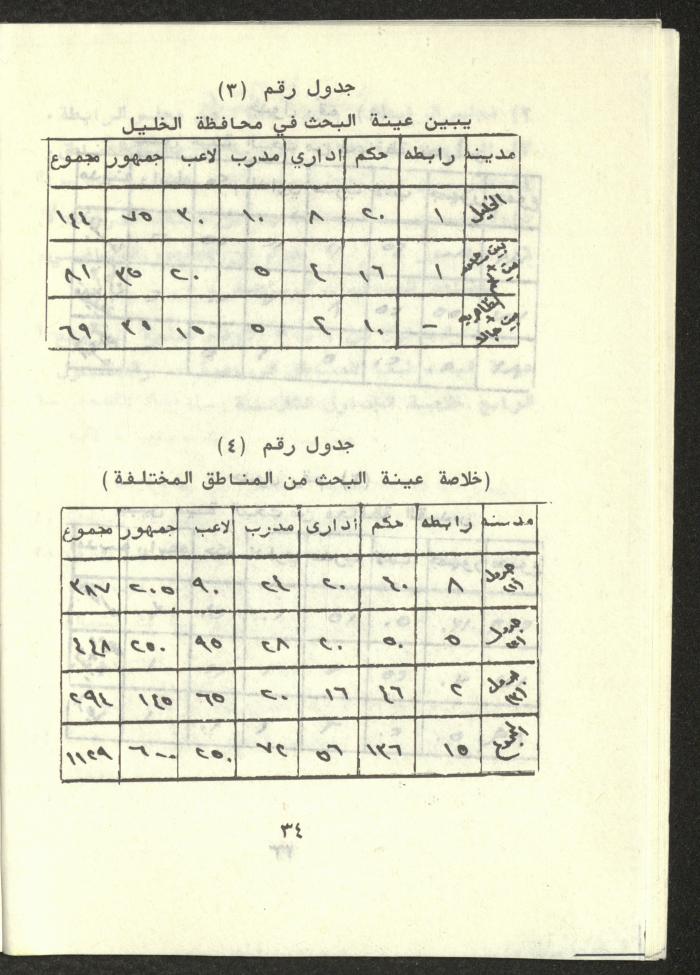 جدول رقم (٣)
يبين عينة البحث في محافظة الخليل
مدينه رابطه حكم اداري مدرب لاعب جمهور مجموع
الخليل ١ ٢٠ ٨ ١٠ ٣٠ ٧٥ ١٤٤
١ ١٦ ٤ ٥ ٢٠ ٣٥ ٨١
الظاهريه - ١٠ ٤ ٥ ١٥ ٣٥ ٦٩
جدول رقم (٤)
(خلاصة عينة البحث من المناطق المختلفة)
مدينه رابطه حكم اداري مدرب لاعب جمهور مجموع
جدول ٨ ٤٠ ٢٠ ٢٤ ٩٠ ٢٠٥ ٣٨٧
جدول ٥ ٥٠ ٢٠ ٢٨ ٩٥ ٢٥٠ ٤٤٨
جدول ٢ ٤٦ ١٦ ٢٠ ٦٥ ١٤٥ ٢٩٤
المجموع ١٥ ١٣٦ ٥٦ ٧٢ ٢٥٠ ٦٠٠ ١١٢٩
٣٤